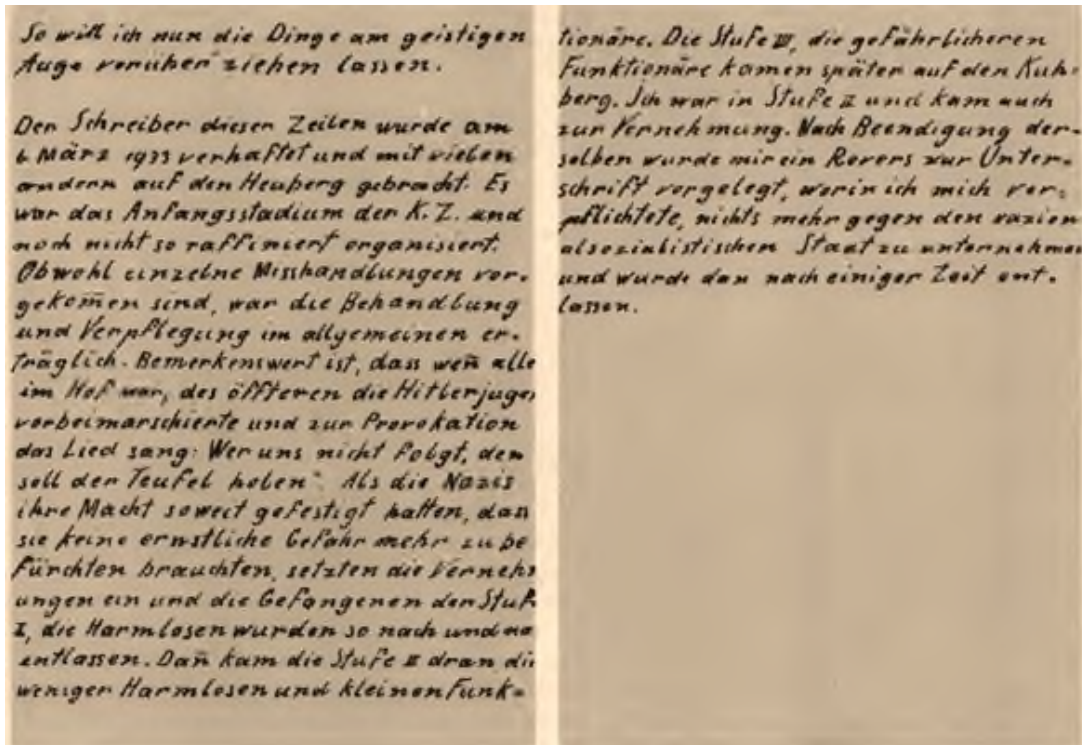 So will ich nun die Dinge am geistigen
Auge vorüber ziehen lassen.
Der Schreiber dieser Zeilen wurde am
6. März 1933 verhaftet und mit vielen
andern auf den Heuberg gebracht. Es
war das Anfangsstadium der K.Z. und
noch nicht so raffiniert organisiert.
Obwohl einzelne Misshandlungen vor-
gekom̅en sind, war die Behandlung
und Verpflegung im allgemeinen er-
träglich. Bemerkenswert ist, dass wen̅ alle
im Hof war, des öffteren die Hitlerjuge
vorbeimarschierte und zur Provokation
das Lied sang: Wer uns nicht folgt, den
soll der Teufel holen". Als die Nazis
ihre Macht soweit gefestigt hatten, dass
sie keine ernstliche Gefahr mehr zu be
fürchten brauchten, setzten die Vernehm
ungen ein und die Gefangenen der Stufe
I, die Harmlosen wurden so nach und na
entlassen. Dan̅ kam die Stufe II dran die
weniger Harmlosen und kleinen Funk-
tionäre. Die Stufe III, die gefährlicheren
Funktionäre kamen später auf den Kuh-
berg. Ich war in Stufe II und kam auch
zur Vernehmung. Nach Beendigung der-
selben wurde mir ein Revers zur Unter-
schrift vorgelegt, worin ich mich ver-
pflichtete, nichts mehr gegen den nazion
alsozialistischen Staat zu unternehmen
und wurde dan nach einiger Zeit ent-
lassen.